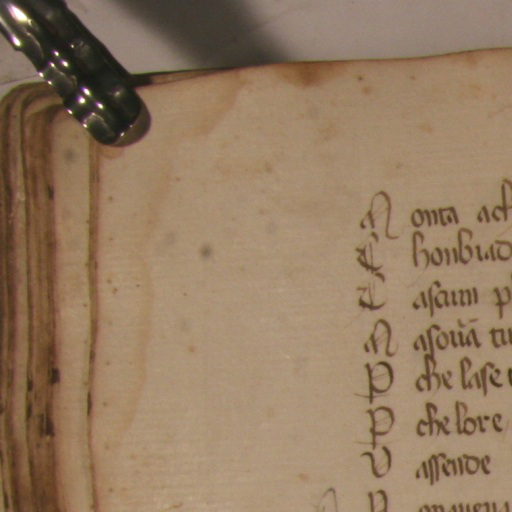 N onta ach
E honbrad
E ascun p
N asouā tu
P che lase
P che lore
V assende
P